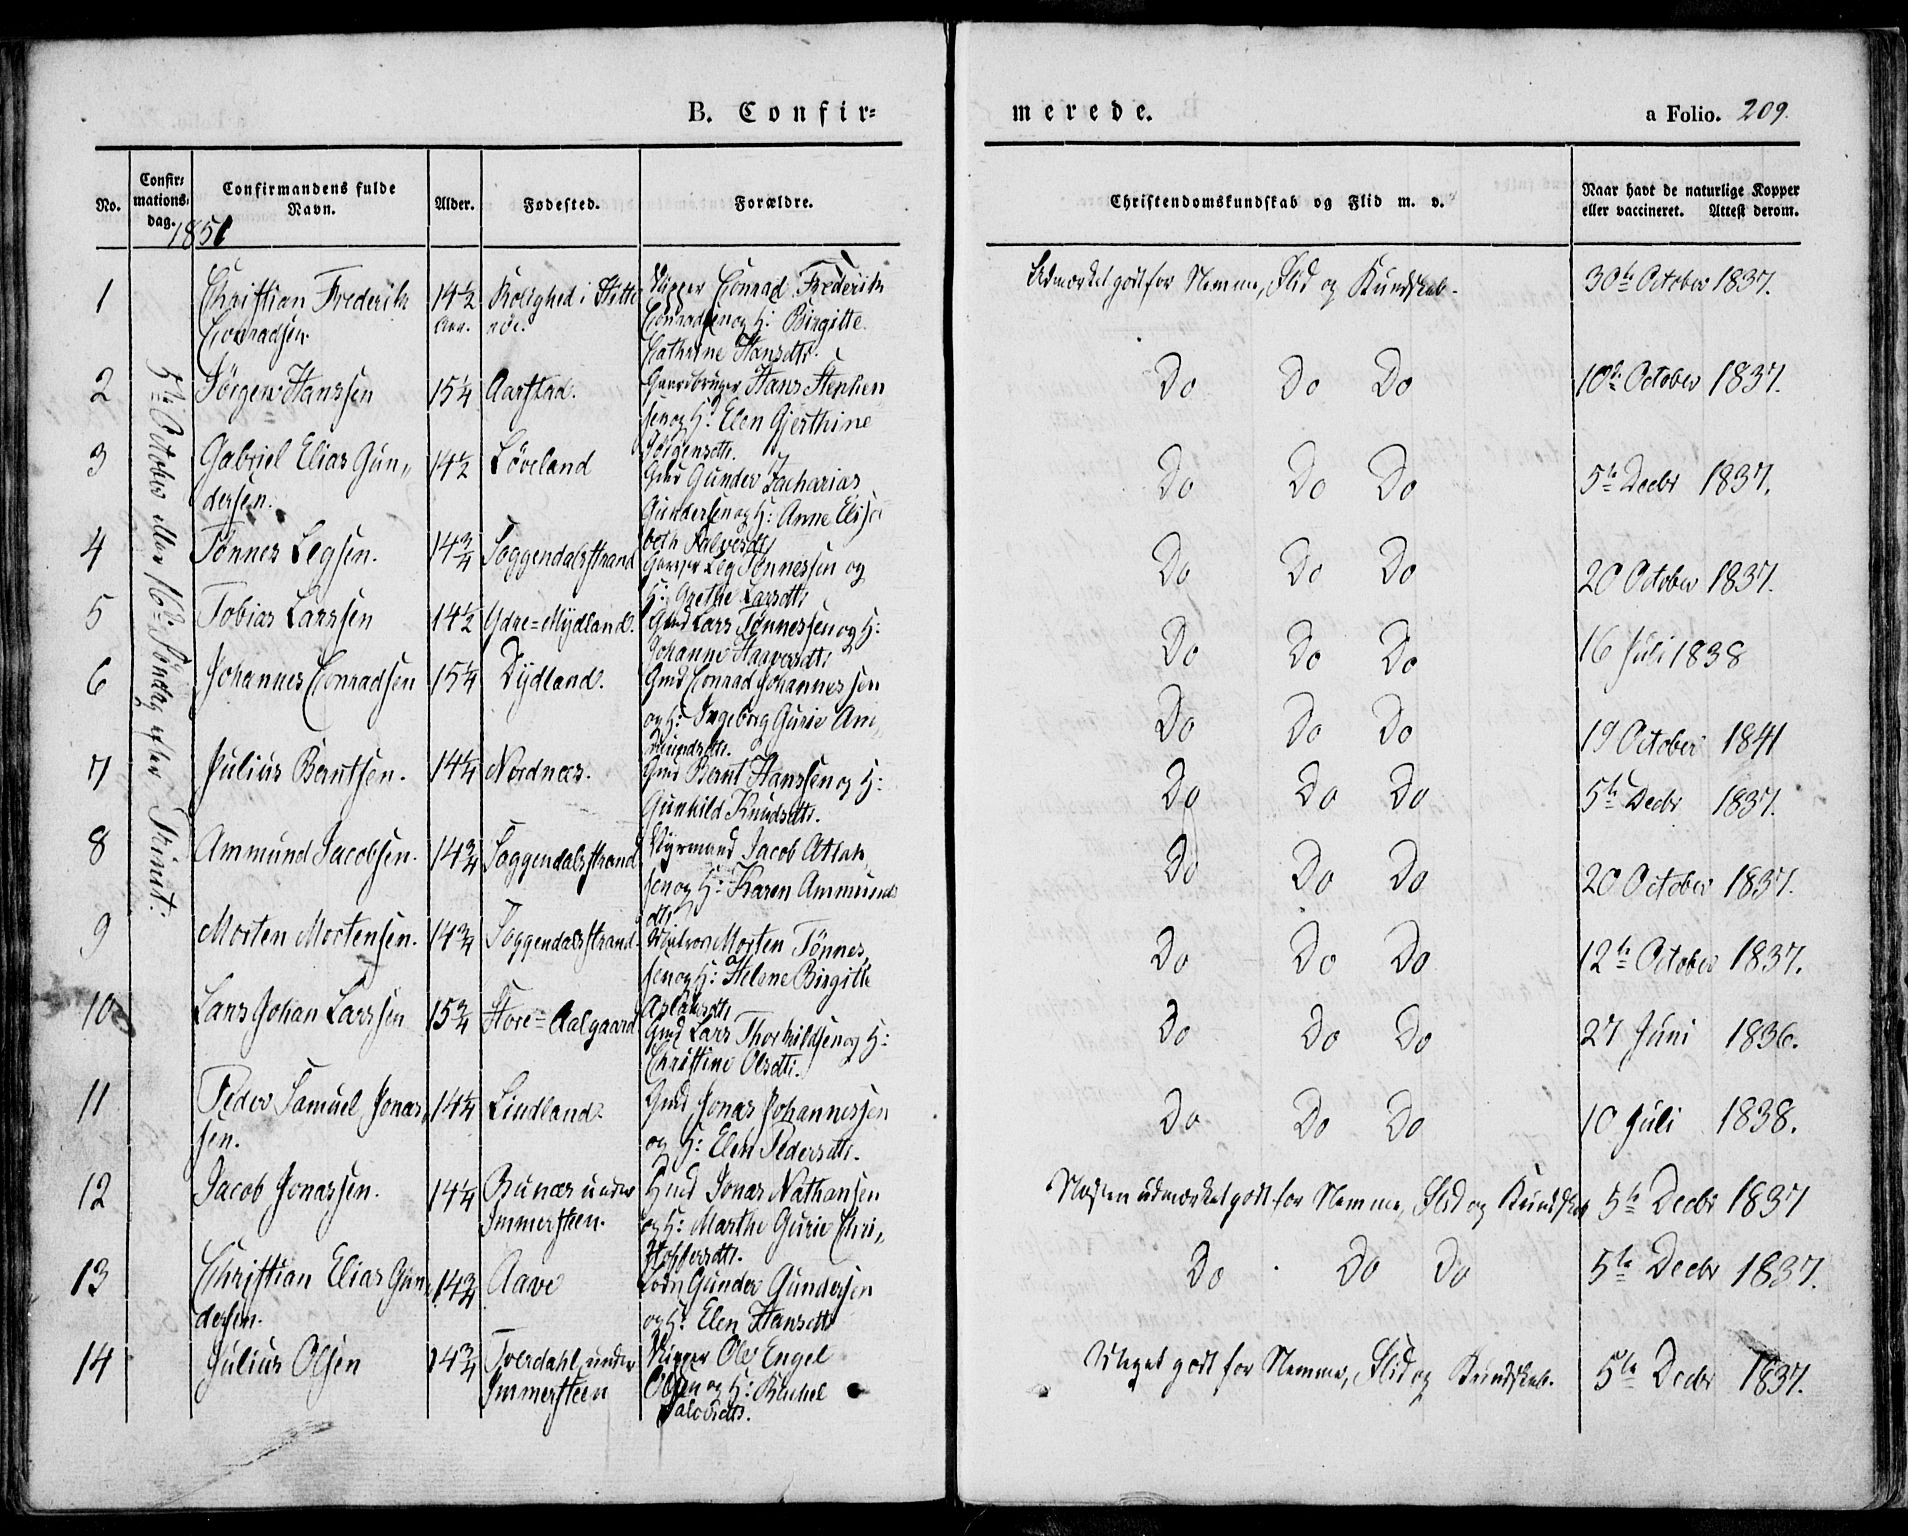 B. Confir=
merede.
a Folio. 209.
No.
Confir=
mations=
dag.
Confirmandens fulde
Navn.
Alder.
Fødested.
Forældre.
Christendomskundskab og Flid m. v.
Naar havt de naturlige Kopper
eller vaccineret. Attest derom.
1851
5te October eller 16de Søndag efter Trinit:
1
Christian Frederik
Conradsen.
14½
Aar.
Rolighed i
Conrad Frederik
Conradsen og H: Birgitte
Cathrine Hansdtr.
Udmærket godt for Nemme, Flid og Kundskab.
30te October 1837.
2
Jørgen Hanssen
15¼
Aarstad.
Gaardbruger Hans Stephen
sen og H: Elen Gjerthine
Jørgensdtr.
Do Do Do
10de October 1837.
3
Gabriel Elias Gun„
dersen.
14½
Løveland
Gmd Gunder Zacharias
Gundersen og H: Anne Elisa
beth Salvesdtr
Do Do Do
5te Decbr 1837.
4
Tønnes Legsen.
14¾
Soggendalsstrand
Leg Tønnessen og
H: Grethe Larsdtr
Do Do Do
20 October 1837.
5
Tobias Larssen
14½
Ydre=Mydland.
Gmd Lars Tønnessen og H:
Johanne Haaversdtr
Do Do Do
16 Juli 1838
6
Johannes Conradsen
15¼
Dydland.
Gmd Conrad Johannessen
og H: Ingeborg Gurie Am„
mundsdtr.
Do Do Do
19 October 1841
7
Julius Berntsen.
14¼
Nordnæs.
Gmd Bernt Hanssen og H:
Gunhild Knudsdtr.
Do Do Do
5te Decbr 1837.
8
Ammund Jacobsen.
14¾
Soggendalsstrand
Styrmand Jacob Atlak
sen og H: Karen Ammunds
dtr
Do Do Do
20 October 1837.
9
Morten Mortensen.
14¾
Soggendalsstrand.
Morten Tønnes
sen og H: Helene Birgitte
Aslaksdtr
Do Do Do
12te October 1837.
10
Lars Johan Larssen
15¾
Store=Aalgaard
Gmd Lars Thorkildsen og H:
Christine Olsdtr.
Do Do Do
27 Juni 1836.
11
Peder Samuel Jonas„
sen.
14¼
Lindland.
Gmd Jonas Johannessen
og H: Elen Pedersdtr.
Do Do Do
10 Juli 1838.
12
Jacob Jonassen.
14¼
Bunæs under
Immersteen.
Hmd Jonas Nathansen
og H: Marthe Gurie Chri„
stoffersdtr.
Næsten udmærket godt for Nemme, Flid og Kundskab
5te Decbr 1837
13
Christian Elias Gun„
dersen.
14¾
Aave
Lods Gunder Gundersen
og H: Elen Hansdtr
Do Do Do
5te Decbr 1837.
14
Julius Olsen
14¾
Tverdahl under
Immersteen
Ole Engel
Olsen og H: Rachel
Salvesdtr.
Meget godt for Nemme, Flid og Kundskab.
5te Decbr 1837.